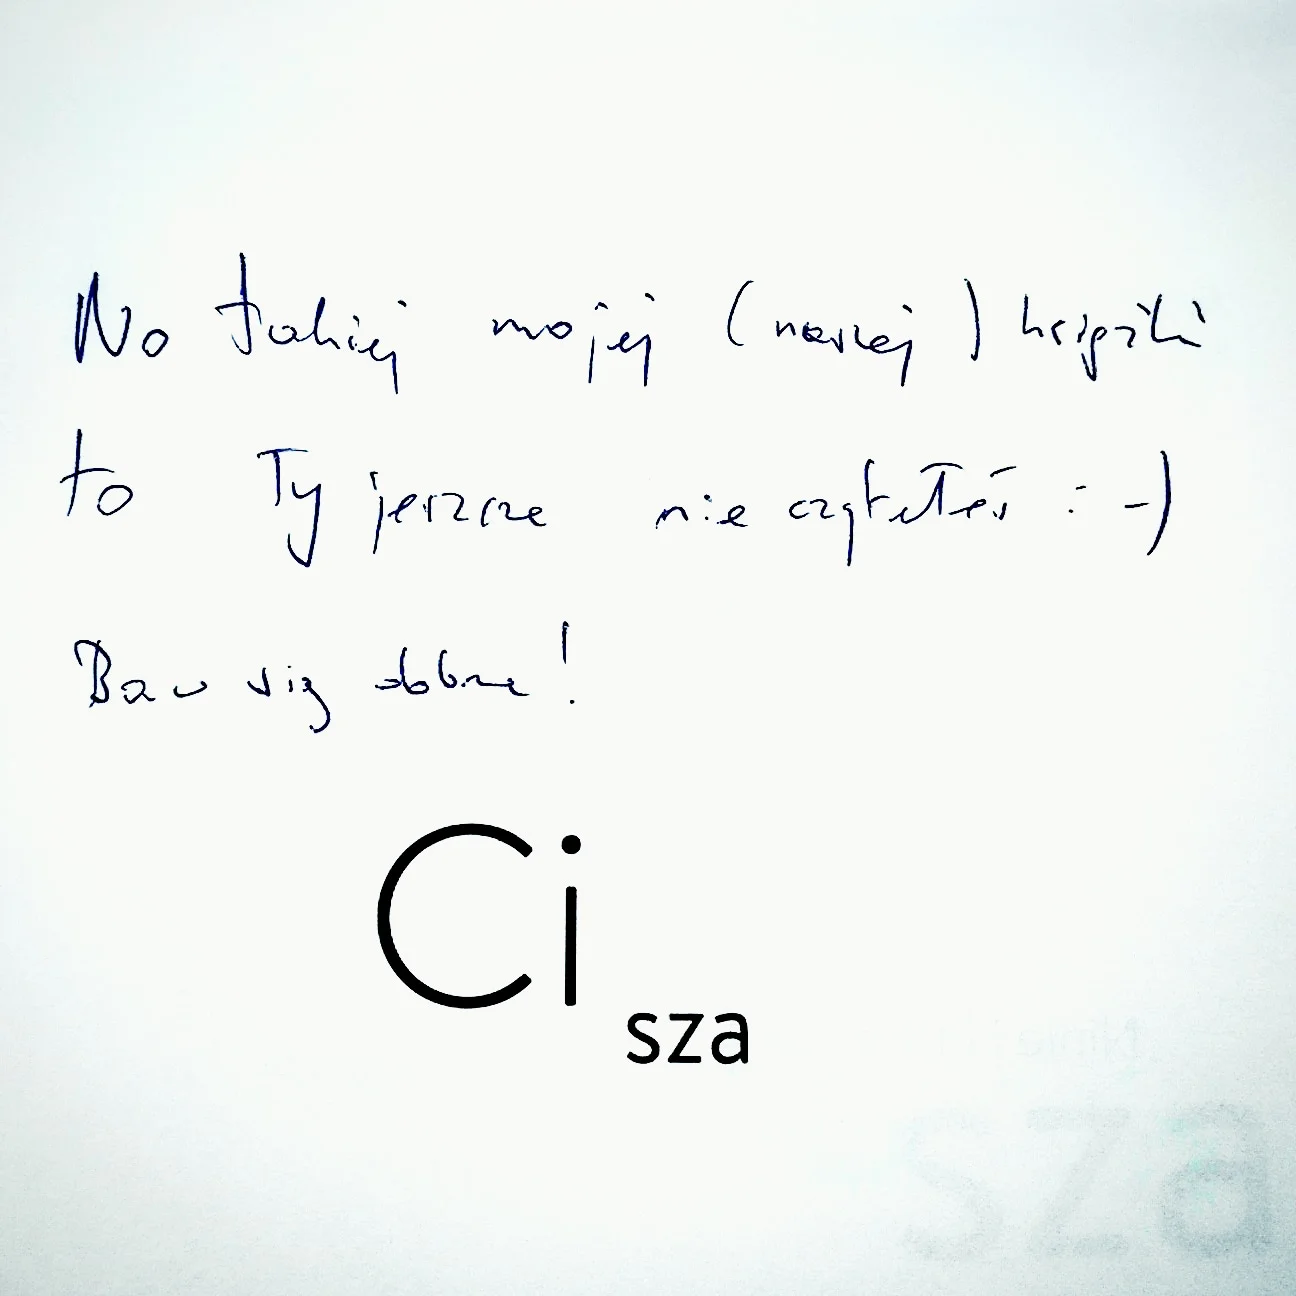 No takiej mojej (naszej) książki
to Ty jeszcze nie czytałeś :-)
Baw się dobrze!
Ci
sza
sza